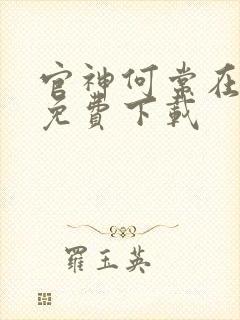 官神何常在
免費下載
羅玉英